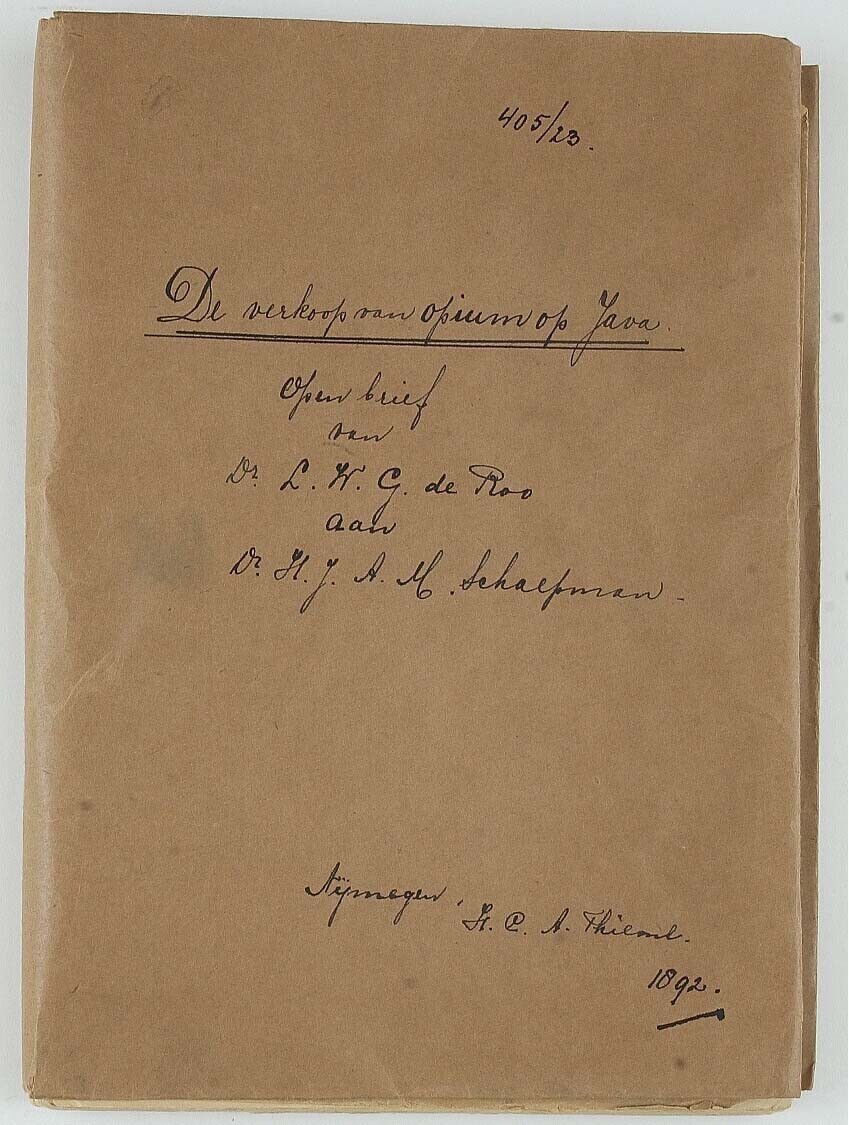 405/23.
De verkoop van opium op Java.
Open brief
van
Dr. L. W. G. de Roo
aan
Dr. H. J. A. M. Schaepman
Nijmegen, H. C. A. Thieme.
1892.